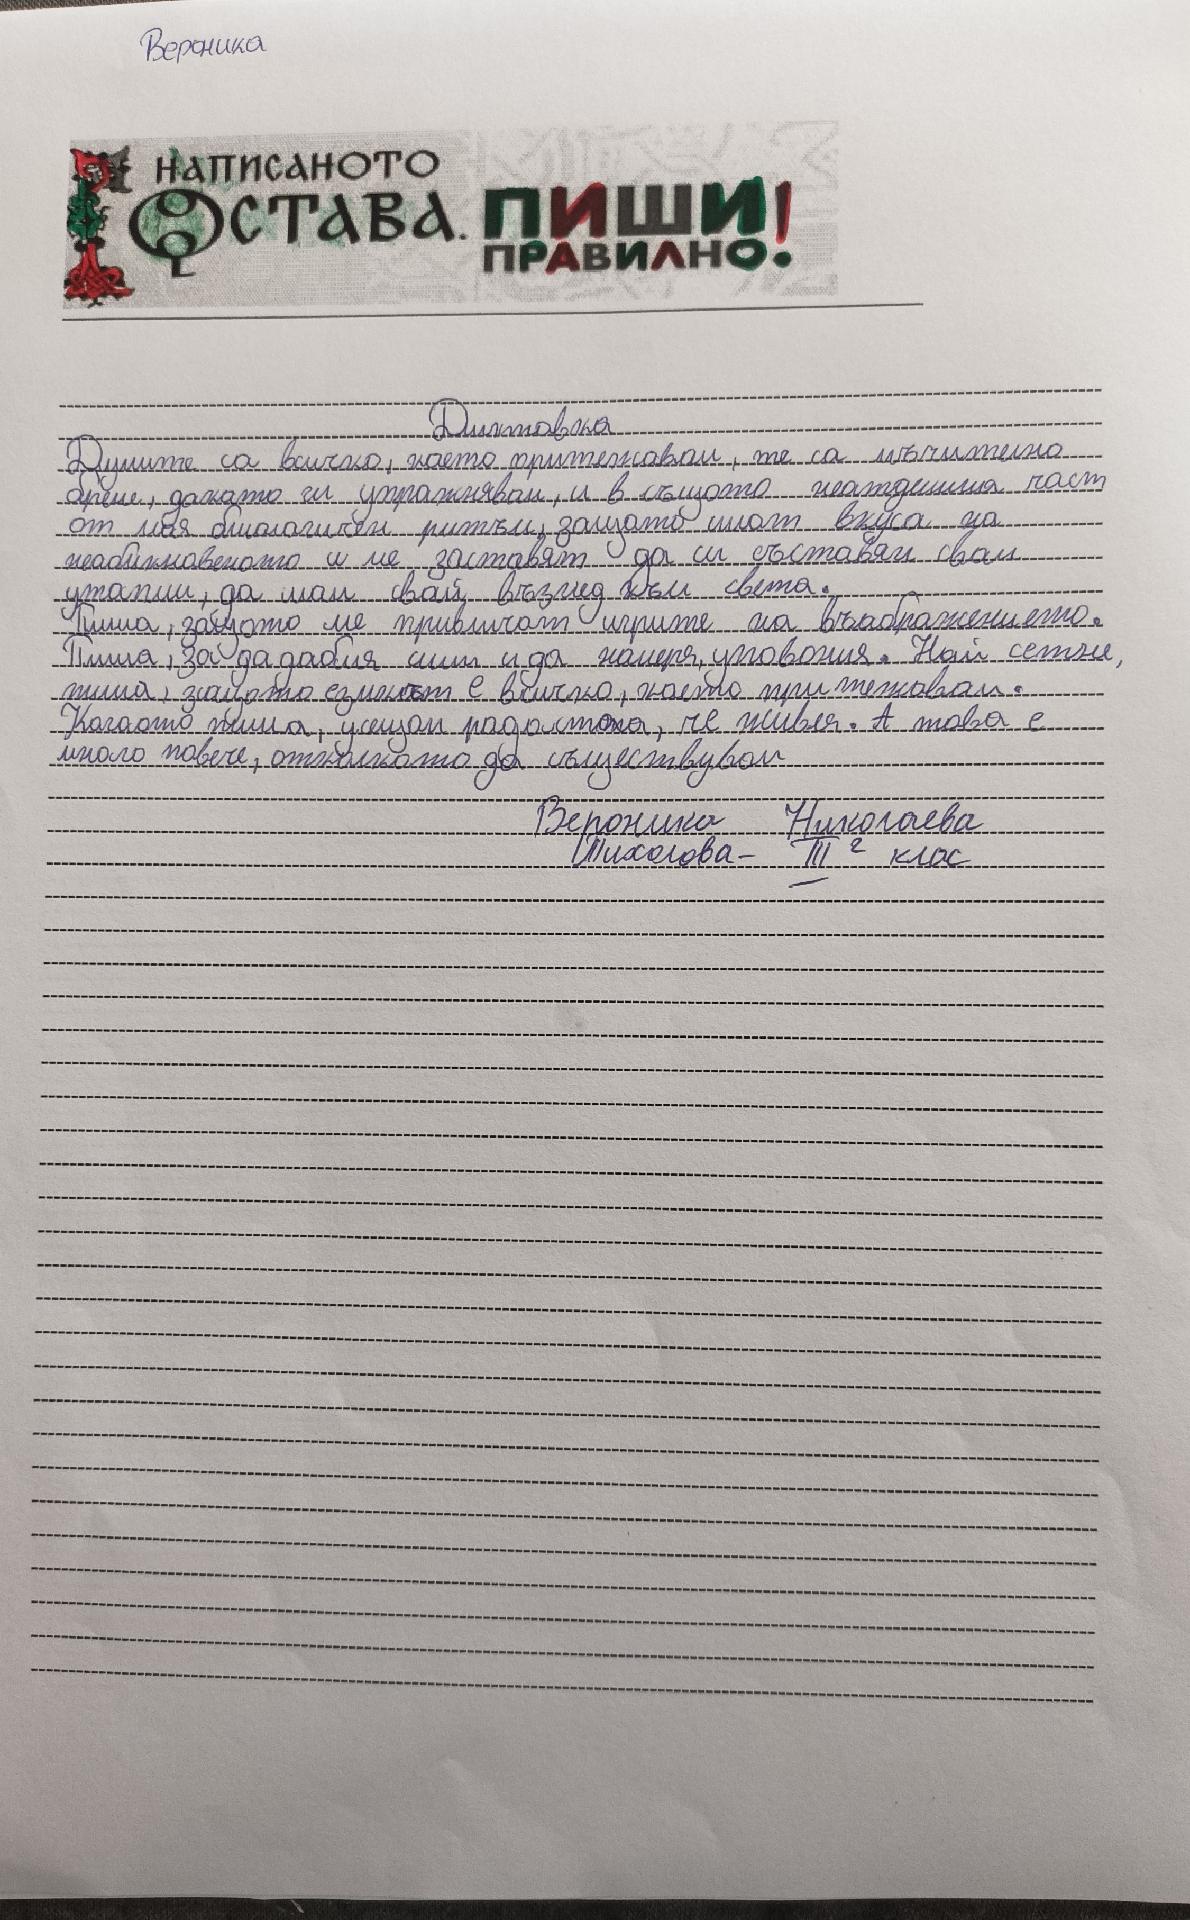 Вероника
НАПИСАНОТО
ОСТАВА. ПИШИ!
ПРАВИЛНО!
Диктовка
Думите са всичко, което притежавам, те са мъчително
бреме, докато ги упражнявам, и в същото неотделима част
от моя биологичен ритъм, защото имат вкуса на
необикновеното и ме заставят да си съставям свои
утопии, да имам свой възглед към света.
Пиша, защото ме привличат игрите на въображението.
Пиша, за да добия сили и да намеря упования. Най сетне,
пиша, защото езикът е всичко, което притежавам.
Когато пиша, усещам радостта, че живея. А това е
много повече, отколкото да съществувам
Вероника Николаева
Тихолова- III г клас